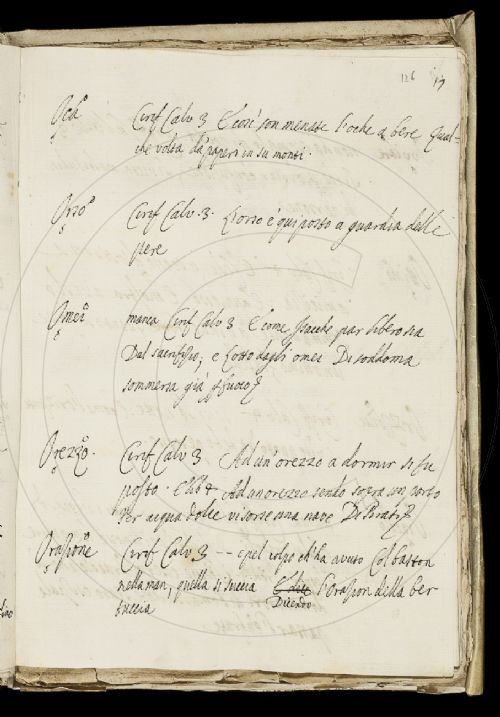 126 17
Ocha Ciref Calv 3 E così son menate l'oche a bere Qual-
che volta da paperi in su monti.
Orso Ciref Calv. 3. L'orso è qui posto a guardia delle
pere
Omei manca Ciref Calv 3 E come Isacche par libero sia
Dal sacrifizio, e Lotto dagli omei Di Soddoma
sommersa già
Orezzo. Ciref Calv 3 Ad un'orezzo a dormir si fu
posto. Ad un orezzo sendo sopra un porto
Per acqua dolce vi sorse una nave Di Pirati
Orazione Ciref Calv 3 -- e pel colpo ch'ha avuto Col baston
nella man, quella si succia Dicendo l'orazion della ber-
tuccia